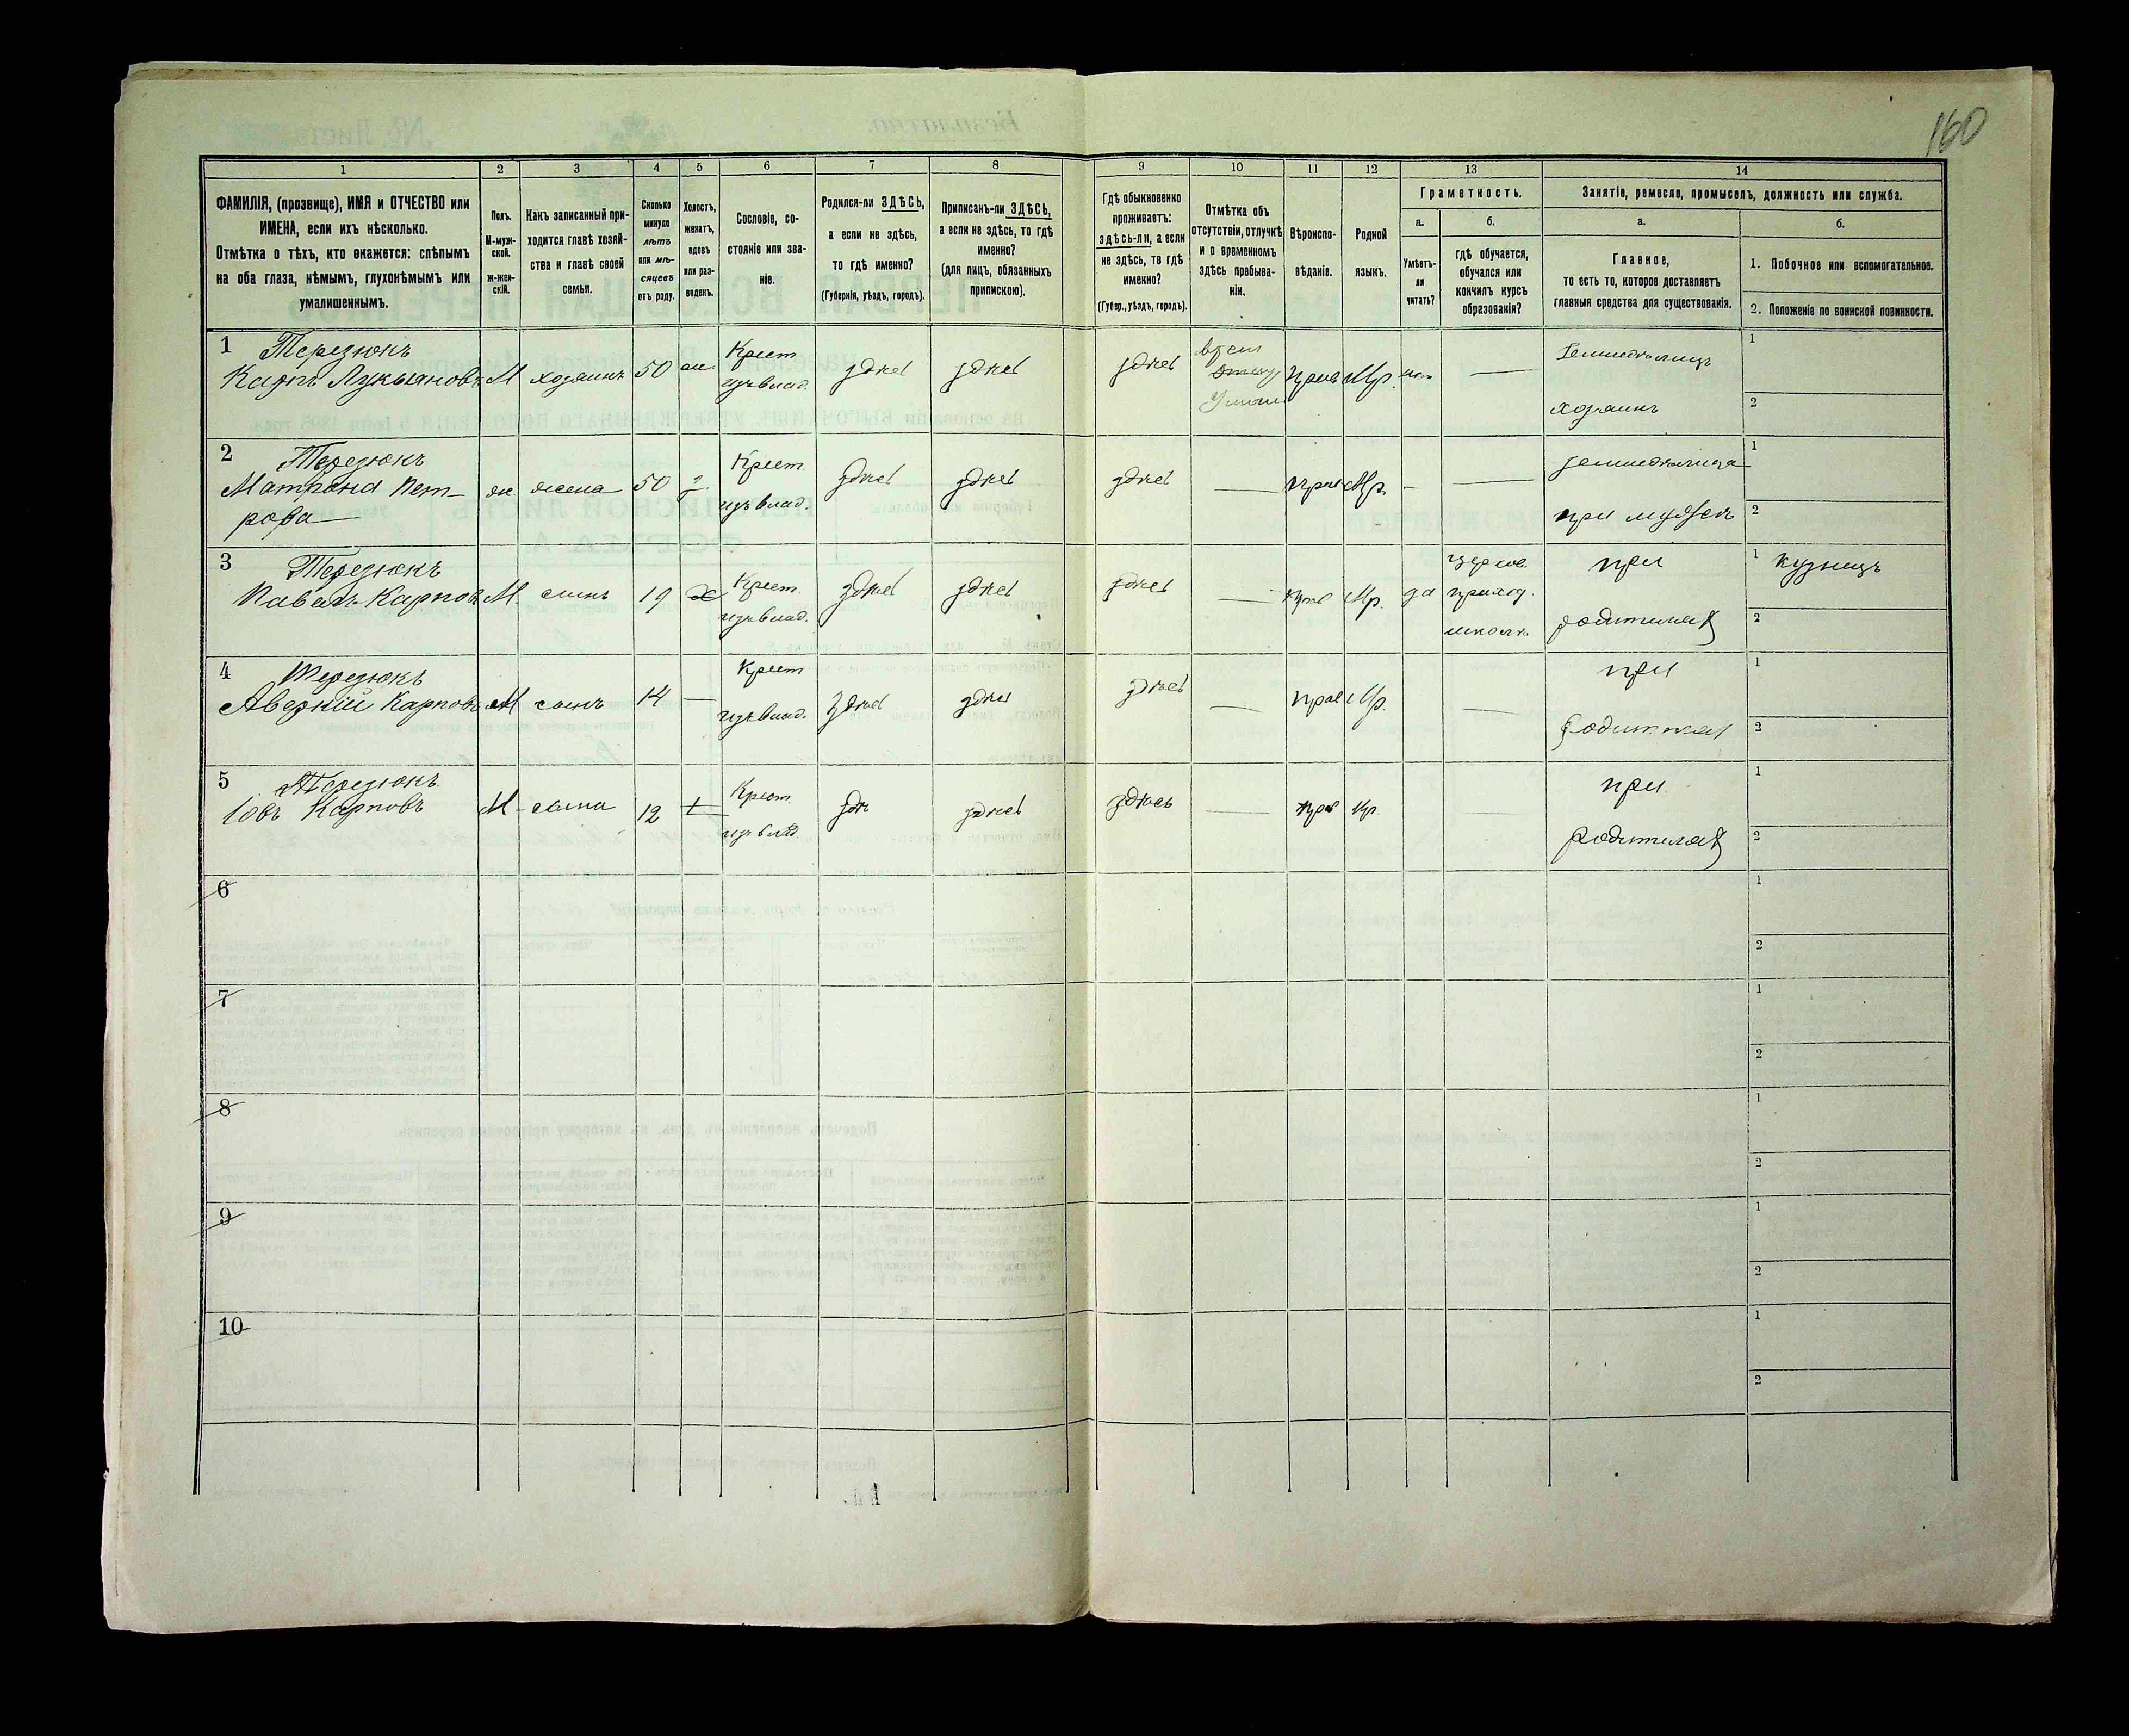 160
1 2 3 4 5 6 7 8 9 10 11 12 13 14
ФАМИЛІЯ, (прозвище), ИМЯ и ОТЧЕСТВО или
ИМЕНА, если ихъ нѣсколько.
Отмѣтка о тѣхъ, кто окажется: слѣпымъ
на оба глаза, нѣмымъ, глухонѣмымъ или
умалишеннымъ.
Полъ.
М-муж-
ской.
ж-жен-
скій.
Какъ записанный при-
ходится главѣ хозяй-
ства и главѣ своей
семьи.
Сколько
минуло
лѣтъ
или мѣ-
сяцевъ
отъ роду.
Холостъ,
женатъ,
вдовъ
или раз-
веденъ.
Сословіе, со-
стояніе или зва-
ніе.
Родился-ли ЗДѢСЬ,
а если не здѣсь,
то гдѣ именно?
(Губернія, уѣздъ, городъ).
Приписанъ-ли ЗДѢСЬ,
а если не здѣсь, то гдѣ
именно?
(для лицъ, обязанныхъ
припискою).
Гдѣ обыкновенно
проживаетъ:
здѣсь-ли, а если
не здѣсь, то гдѣ
именно?
(Губер., уѣздъ, городъ).
Отмѣтка объ
отсутствіи, отлучкѣ
и о временномъ
здѣсь пребыва-
ніи.
Вѣроиспо-
вѣданіе.
Родной
языкъ.
Граметность.
а.
Умѣетъ-
ли
читать?
б.
гдѣ обучается,
обучался или
кончилъ курсъ
образованія?
Занятіе, ремесло, промыселъ, должность или служба.
а.
Главное,
то есть то, которое доставляетъ
главныя средства для существованія.
б.
1. Побочное или вспомогательное.
2. Положеніе по воинской повинности.
1 Терезюкъ
Карпъ Лукьяновъ М хозяинъ 50 Крест
изъ влад. здѣсь здѣсь здѣсь прав Мр. —
хозяинъ
1
2
2 Терезюкъ
Матрона Пет-
рова ж жена 50 Крест.
изъ влад. здѣсь здѣсь здѣсь — прав Мр. — —
при мужѣ
1
2
3 Терезюкъ
Павелъ Карповъ М сынъ 19 х Крест.
изъ влад. здѣсь здѣсь здѣсь — прав Мр. да церков.
приход.
школѣ.
при
родителяхъ
1 кузнецъ
2
4 Терезюкъ
Аверкій Карповъ М сынъ 14 — Крест
изъ влад. здѣсь здѣсь здѣсь — прав Мр. —
при
родителяхъ
1
2
5 Терезюкъ
Іовъ Карповъ М сына 12 Крест.
изъ влад. здѣсь здѣсь — прав Мр. —
при
родителяхъ
1
2
6
1
2
7
1
2
8
1
2
9
1
2
10
1
2